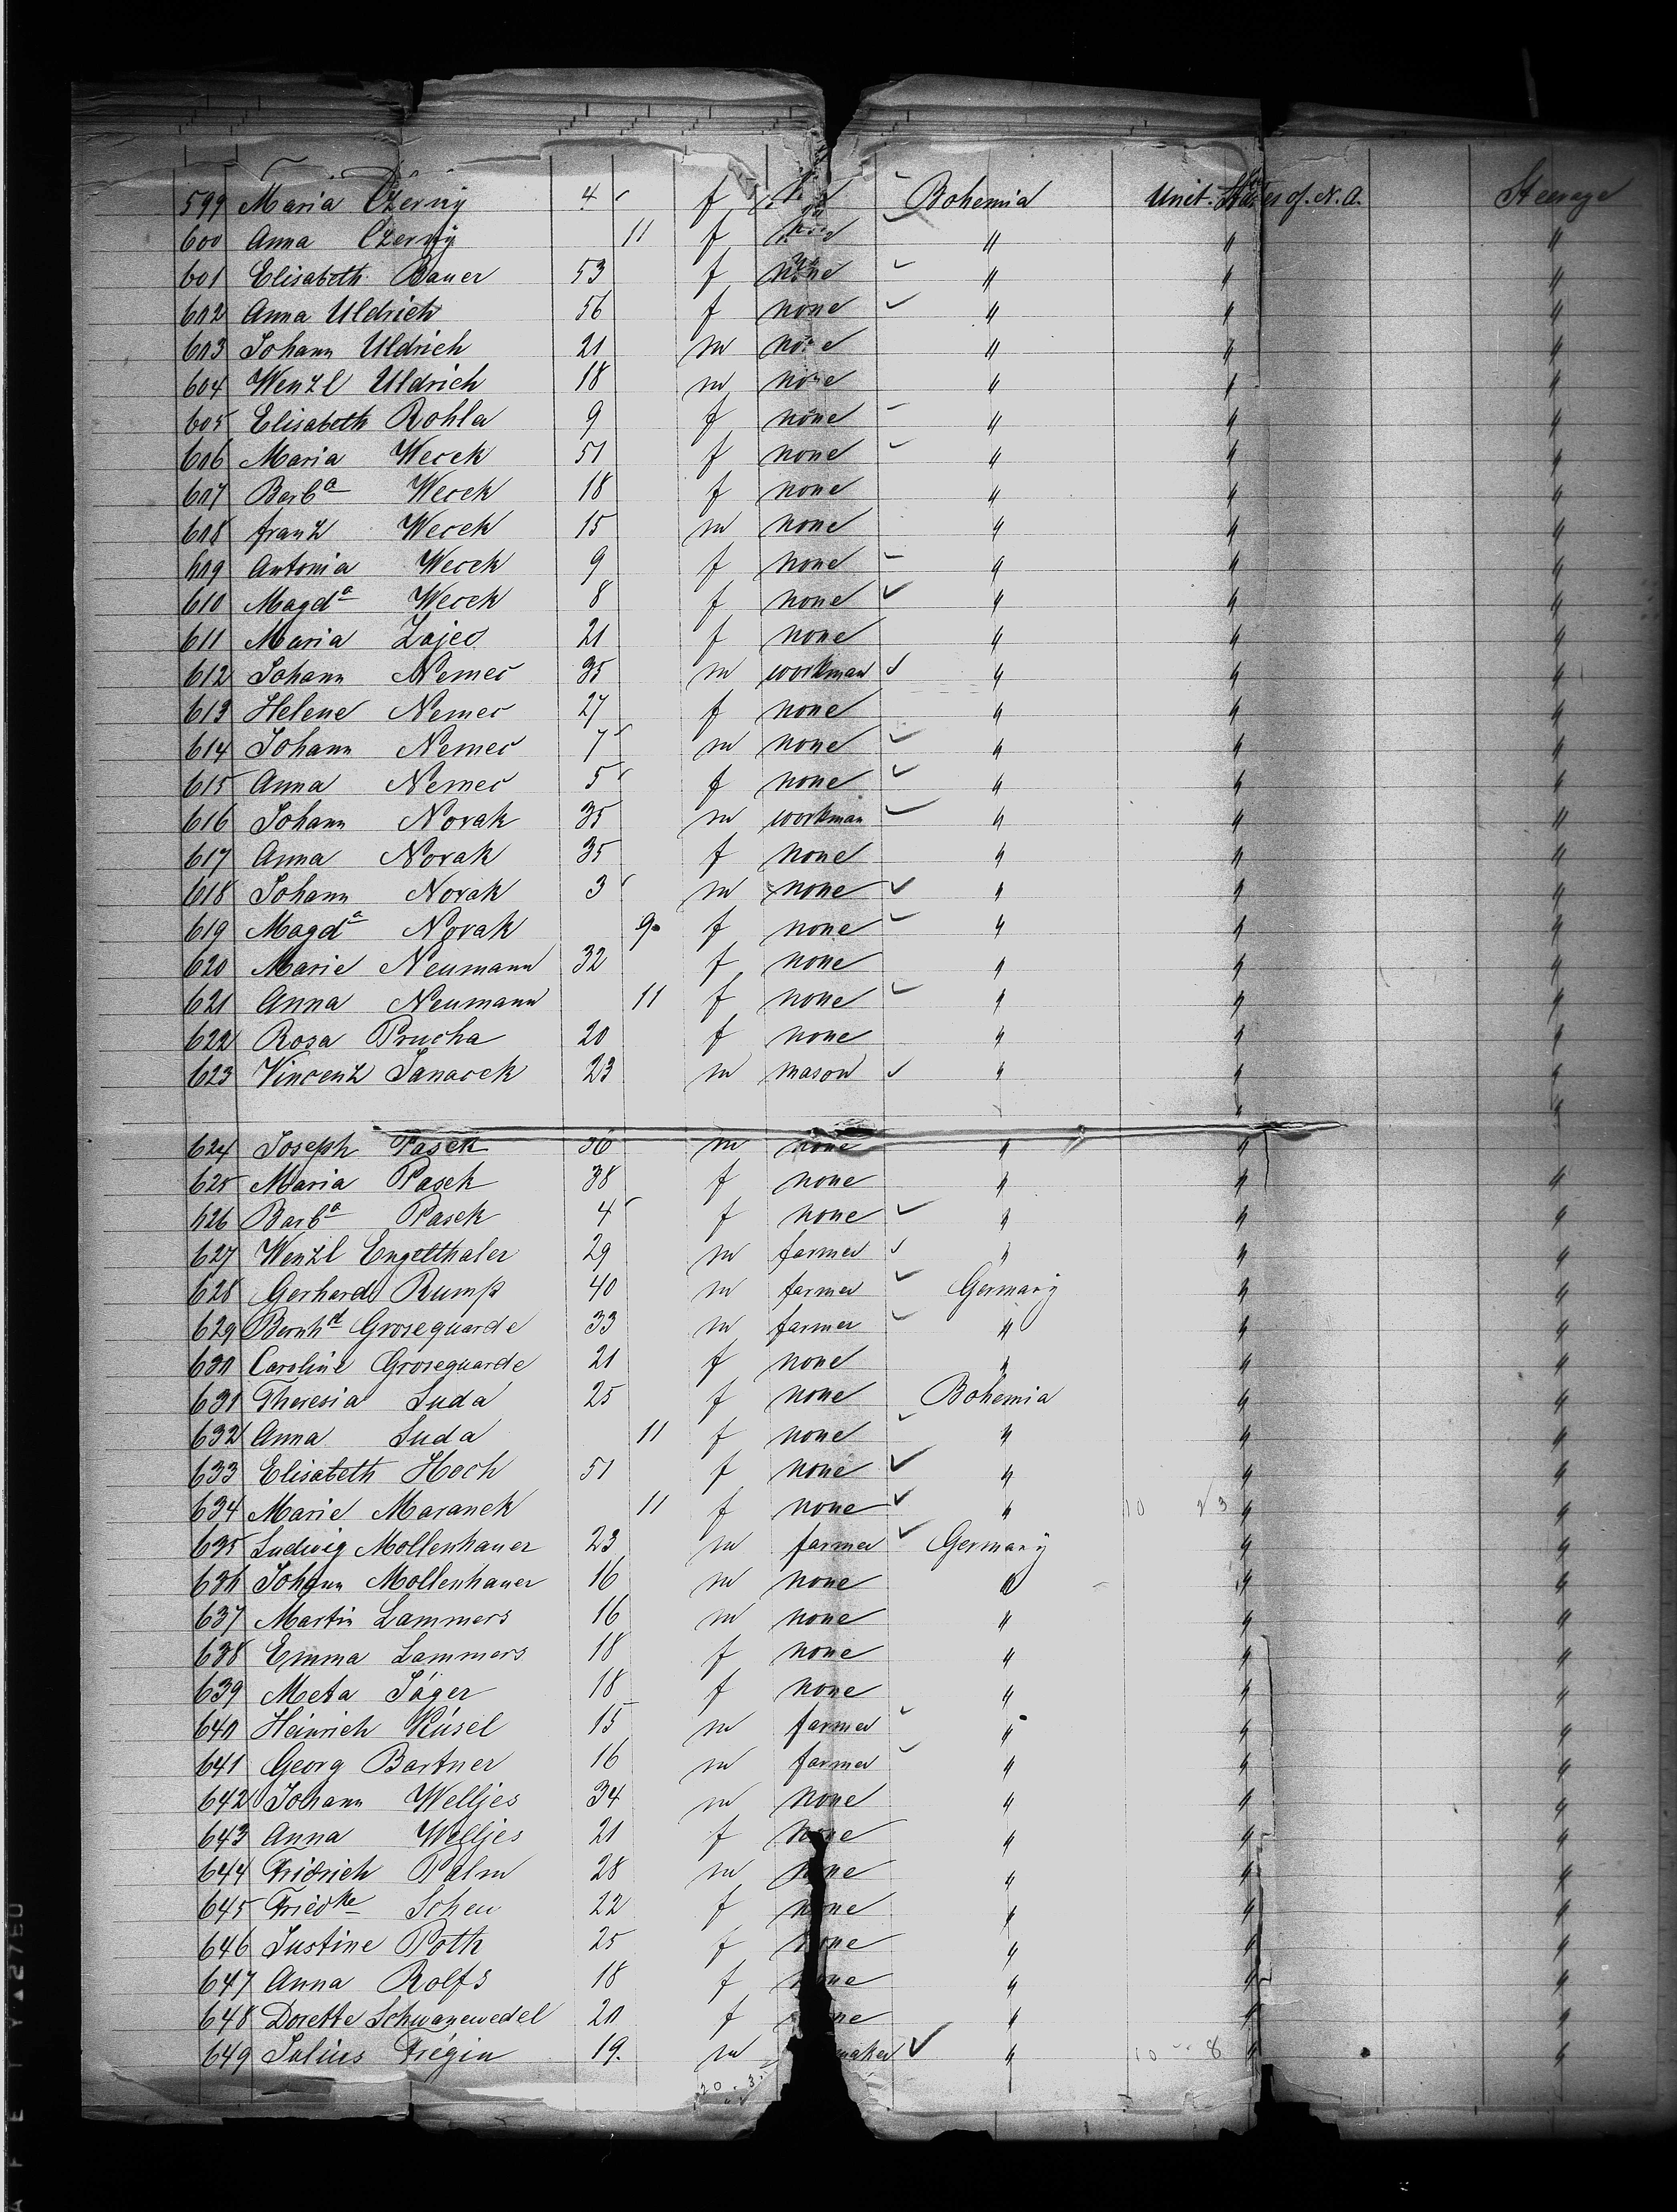 599 Maria Czerny 4 f Bohemia Unit. States of. N. A. Steerage
600 Anna Czerny 11 f " " "
601 Elisabeth Bauer 53 f none " " "
602 Anna Uldrich 56 f none " " "
603 Johann Uldrich 21 m none " " "
604 Wenzl Uldrich 18 m none " " "
605 Elisabeth Rohla 9 f none " " "
606 Maria Wecek 51 f none " " "
607 Barbª Wecek 18 f none " " "
608 Franz Wecek 15 m none " " "
609 Antonia Wecek 9 f none " " "
610 Magdª Wecek 8 f none " " "
611 Maria Zajec 21 f none " " "
612 Johann Nemec 35 m workman " " "
613 Helene Nemec 27 f none " " "
614 Johann Nemec 7 m none " " "
615 Anna Nemec 5 f none " " "
616 Johann Novak 35 m workman " " "
617 Anna Novak 35 f none " " "
618 Johann Novak 3 m none " " "
619 Magdª Novak 9 f none " " "
620 Marie Neumann 32 f none " " "
621 Anna Neumann 11 f none " " "
622 Rosa Prucha 20 f none " " "
623 Vincenz Janacek 23 m mason " " "
" "
624 Joseph Pasek 36 m none " "
625 Maria Pasek 38 f none " " "
626 Barbª Pasek 4 f none " " "
627 Wenzl Engelthaler 29 m farmer " " "
628 Gerhard Rump 40 m farmer Germany " "
629 Bernhd Grosequarde 33 m farmer " " "
630 Caroline Grosequarde 21 f none " " "
631 Theresia Suda 25 f none Bohemia " "
632 Anna Suda 11 f none " " "
633 Elisabeth Hoch 51 f none " " "
634 Marie Maranek 11 f none " 10 " "
635 Ludwig Mollenhauer 23 m farmer Germany " "
636 Johann Mollenhauer 16 m none " " "
637 Martin Lammers 16 m none " " "
638 Emma Lammers 18 f none " " "
639 Meta Jäger 18 f none " " "
640 Heinrich Küsel 15 m farmer " " "
641 Georg Bartner 16 m farmer " " "
642 Johann Welljes 34 m none " " "
643 Anna Welljes 21 f none " " "
644 Fridrich Palm 28 m none " " "
645 Friedke Scheu 22 f none " " "
646 Justine Poth 25 f none " " "
647 Anna Rolfs 18 f none " " "
648 Dorette Schwanewedel 20 f none " " "
649 Julius Fregin 19. m maker " 10 8 " "